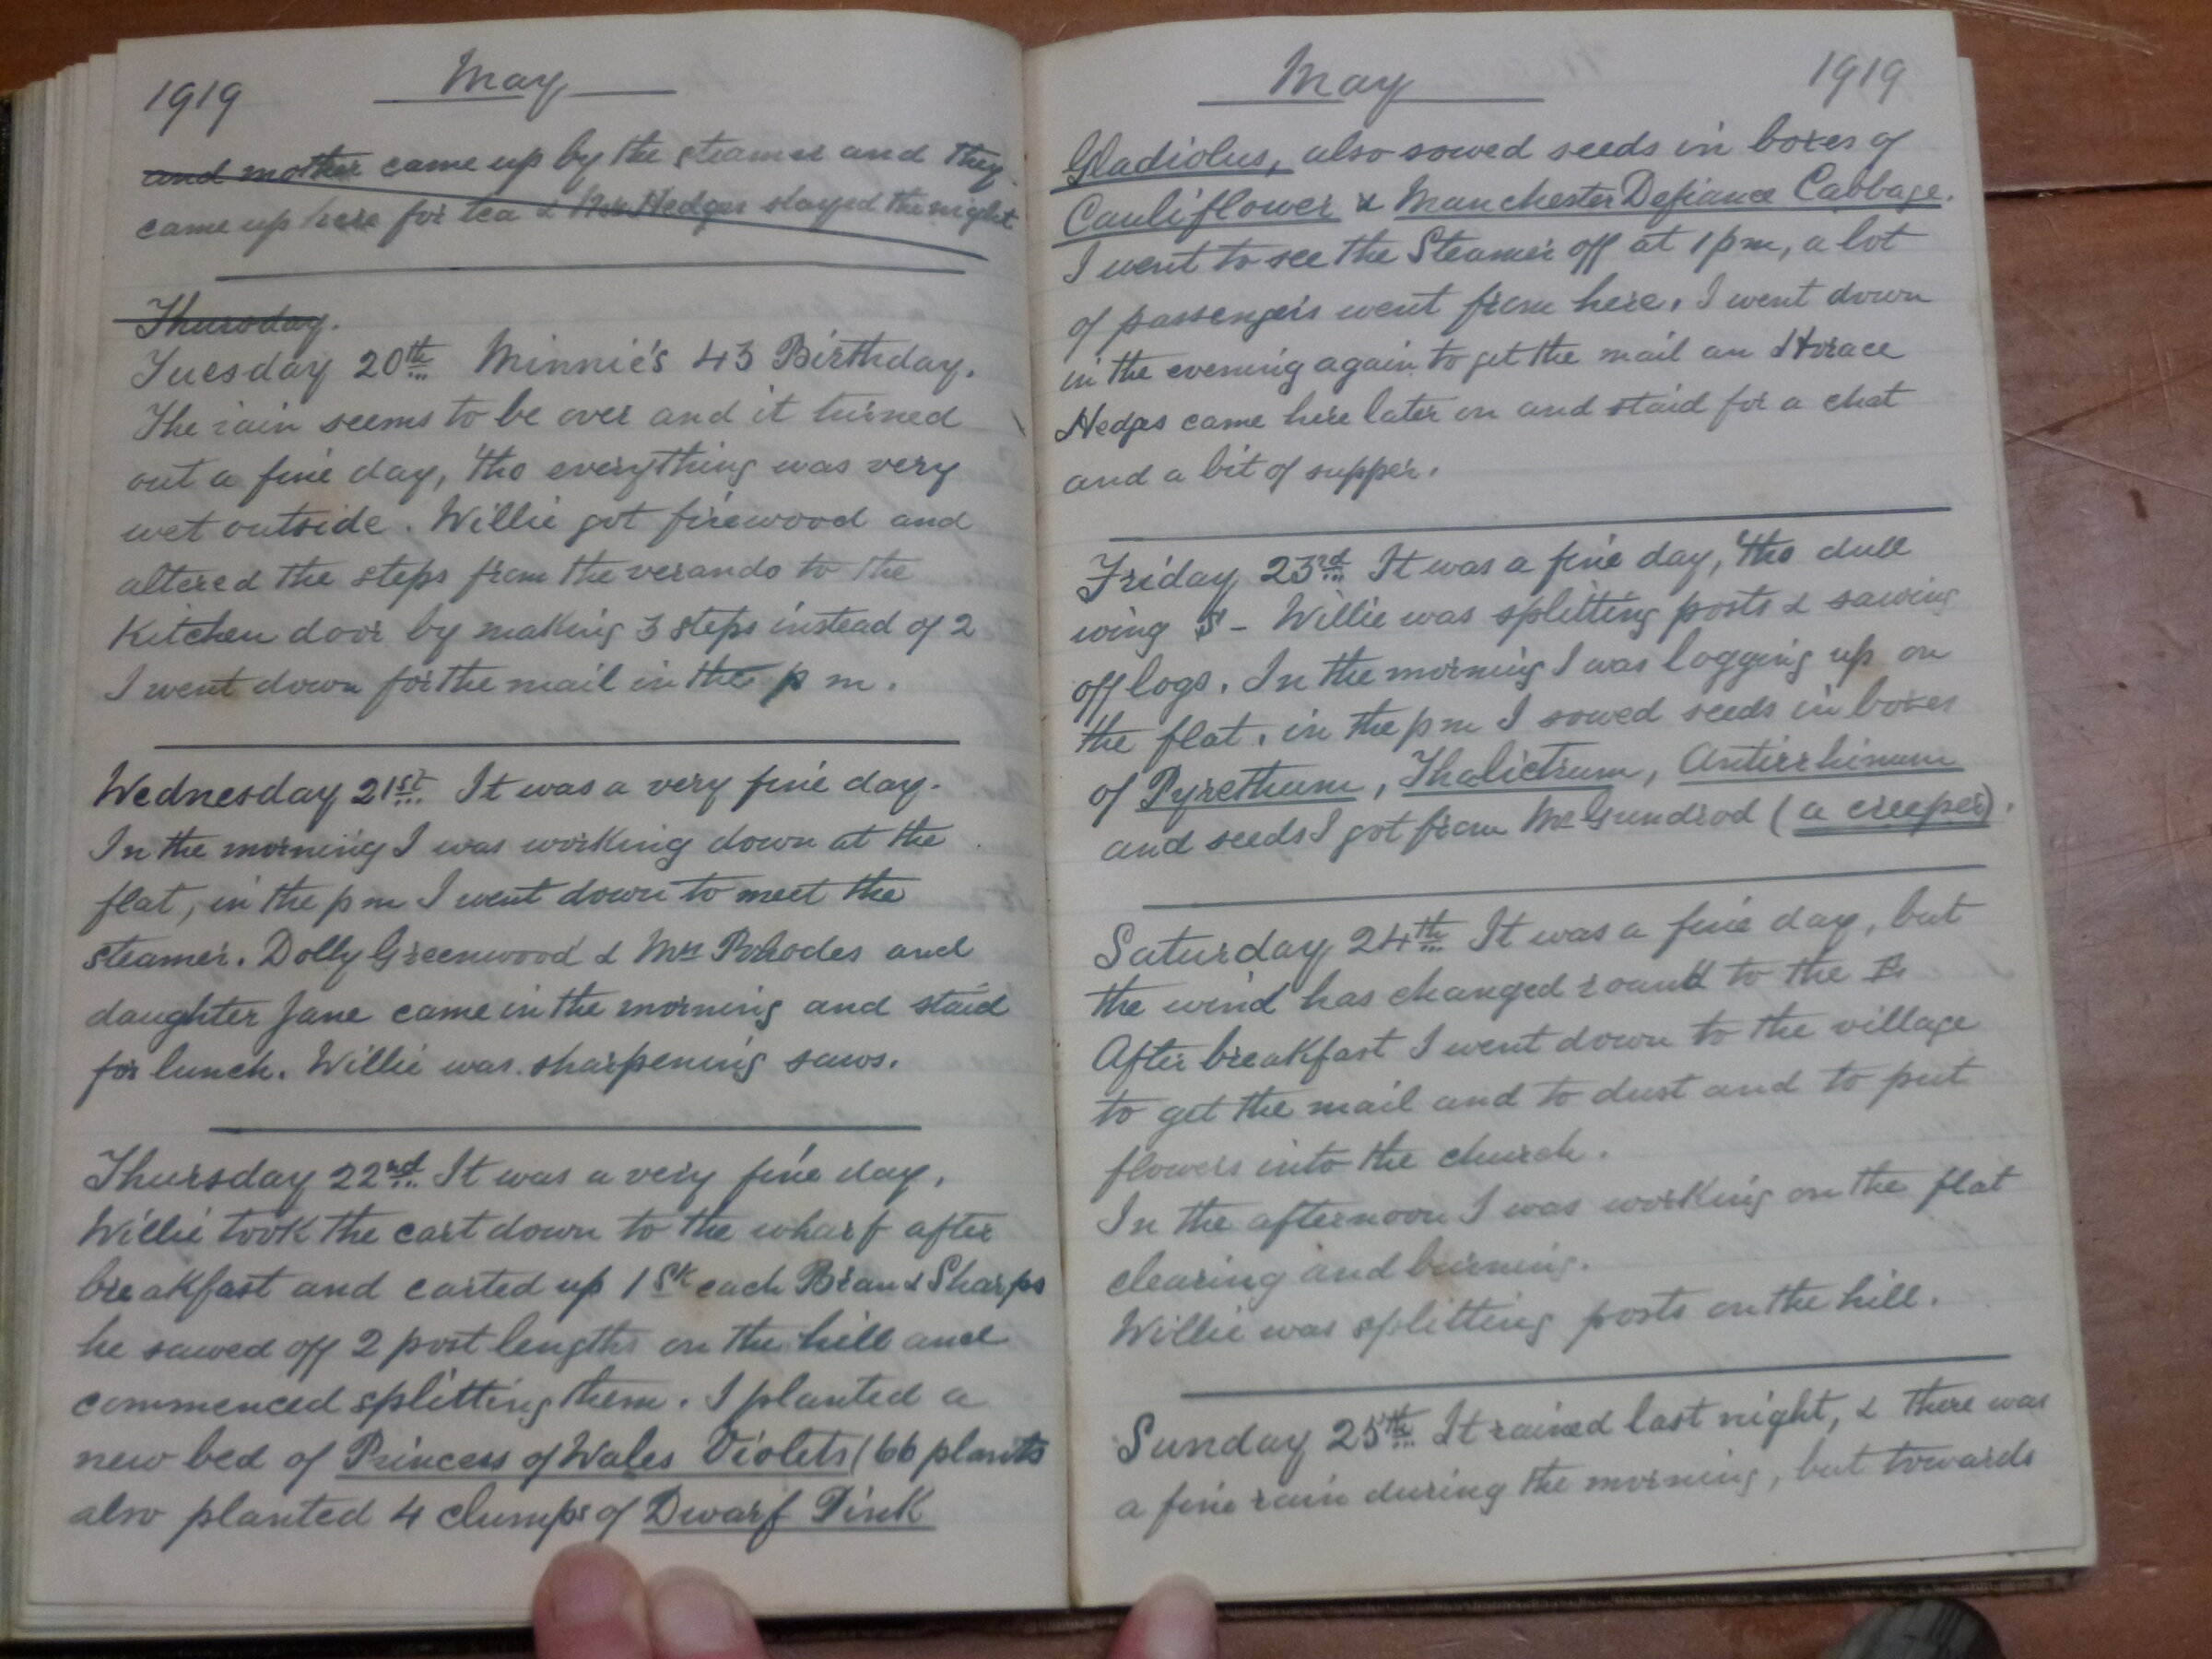 1919 May
and mother came up by the steamer and they
came up here for tea & Mrs Hedges stayed the night
Thursday.
Tuesday 20th Minnie's 43 Birthday.
The rain seems to be over and it turned
out a fine day, 'tho everything was very
wet outside. Willie got firewood and
altered the steps from the verando to the
Kitchen door by making 3 steps instead of 2
I went down for the mail in the p m.
Wednesday 21st It was a very fine day.
In the morning I was working down at the
flat, in the p m I went down to meet the
steamer. Dolly Greenwood & Mrs Rhodes and
daughter Jane came in the morning and staid
for lunch. Willie was sharpening saws.
Thursday 22nd It was a very fine day.
Willie took the cart down to the wharf after
breakfast and carted up 1 Sk each Bran & Sharps
he sawed off 2 post lengths on the hill and
commenced splitting them. I planted a
new bed of Princess of Wales Violets (66 plants
also planted 4 clumps of Dwarf Pink
May 1919
Gladiolus, also sowed seeds in boxes of
Cauliflower & Manchester Defiance Cabbage.
I went to see the Steamer off at 1 pm, a lot
of passengers went from here. I went down
in the evening again to get the mail an Horace
Hedges came here later on and staid for a chat
and a bit of supper.
Friday 23rd It was a fine day, 'tho dull
wing S - Willie was splitting posts & sawing
off logs. In the morning I was logging up on
the flat. in the p m I sowed seeds in boxes
of Pyrethum, Thalictrum, Antirrhinum
and seeds I got from Mr Gundrod (a creeper).
Saturday 24th It was a fine day, but
the wind has changed round to the E
After breakfast I went down to the village
to get the mail and to dust and to put
flowers into the church.
In the afternoon I was working on the flat
clearing and burning.
Willie was splitting posts on the hill.
Sunday 25th It rained last night, & there was
a fine rain during the morning, but towards